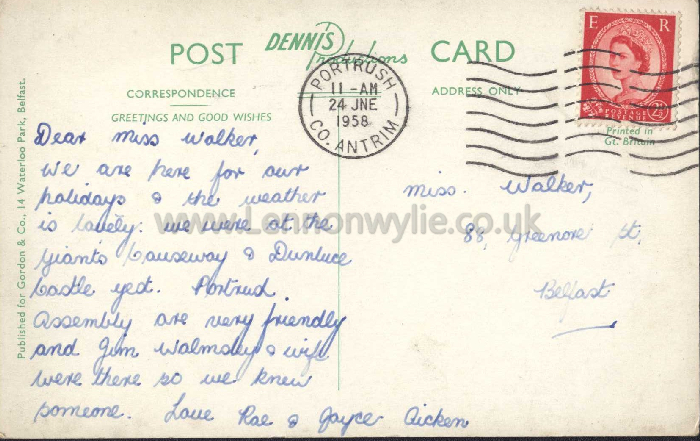 POST DENNIS Productions CARD
CORRESPONDENCE
GREETINGS AND GOOD WISHES
ADDRESS ONLY
PORTRUSH
11-AM
24 JNE
1958
CO. ANTRIM
E R
POSTAGE
REVENUE
2½
Printed in
Gt. Britain
Published for Gordon & Co., 14 Waterloo Park, Belfast.
Dear Miss Walker,
We are here for our
holidays & the weather
is lovely: we were at the
Giants Causeway & Dunluce
Castle yed. Portrud.
Assembly are very friendly
and Jim Walmsley & wife
were there so we knew
someone. Love Rae & Joyce Aicken
Miss. Walker,
88, Greenore St,
Belfast
www.Lennonwylie.co.uk